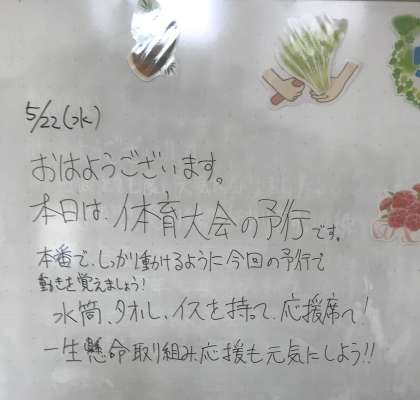 5/22(水)
おはようございます。
本日は、体育大会の予行です。
本番で、しっかり動けるように今回の予行で
動きを覚えましょう!
水筒、タオル、イスを持って、応援席へ!
一生懸命取り組み、応援も元気にしよう!!